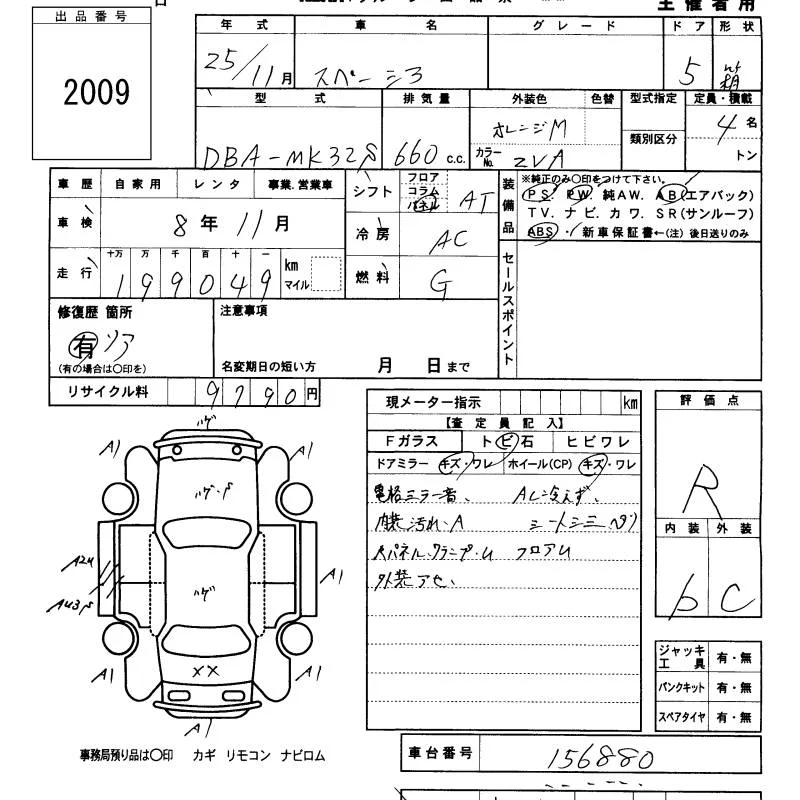 主催者用
出品番号
2009
年式 車名 グレード ドア 形状
25/11月 スペーシア 5 箱
型式 排気量 外装色 色替 型式指定 定員・積載
オレンジM 類別区分 4名
DBA-MK32S 660c.c. カラーNo. ZVA トン
車歴 自家用 レンタ 事業.営業車
車検 8年11月
走行 十万 万 千 百 十 一
199049 km マイル
シフト フロア コラム パネル AT
冷房 AC
燃料 G
装備品
※純正のみ〇印をつけて下さい。
PS. PW. 純AW. AB(エアバック)
TV. ナビ. カワ. SR(サンルーフ)
ABS ・新車保証書←(注) 後日送りのみ
セールスポイント
修復歴 箇所
有 リア
(有の場合は〇印を)
注意事項
名変期日の短い方 月 日まで
リサイクル料 9790円
現メーター指示 km
【査定員記入】
Fガラス トビ石 ヒビワレ
ドアミラー キズ・ワレ ホイール(CP) キズ・ワレ
電格ミラー音、 AC冷えず、
内装汚れ・A シートシミ
フロアU
外装アセ、
評価点
R
内装 外装
b C
ツゲ
A1 A1
ツゲ・S
A2U
A1
A1
ツゲ
A1 XX A1
A1
ジャッキ工具 有・無
パンクキット 有・無
スペアタイヤ 有・無
事務局預り品は〇印 カギ リモコン ナビロム
車台番号 156880